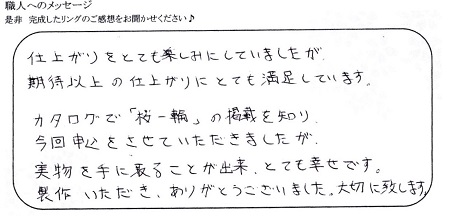 職人へのメッセージ
是非 完成したリングのご感想をお聞かせください♪
仕上がりをとても楽しみにしていましたが、
期待以上の仕上がりにとても満足しています。
カタログで「桜一輪」の掲載を知り、
今回申込をさせていただきましたが、
実物を手に取ることが出来、とても幸せです。
製作いただき、ありがとうございました。大切に致します。